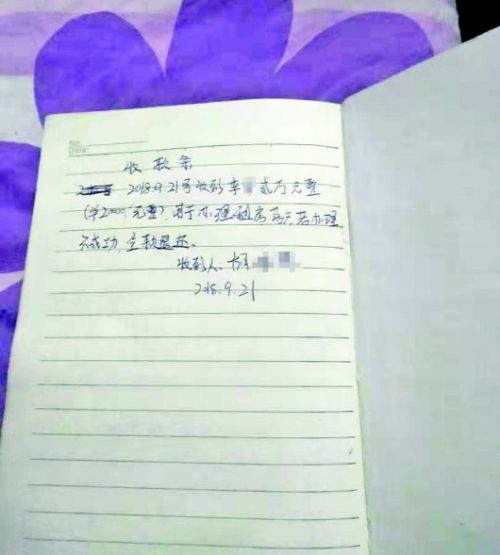 No.
Date.
收款条
2018.9.21号收到李 贰万元整
(¥20000元整)用于办理 房 若办理
不成功,全款退还。
收到人:胡
2018.9.21